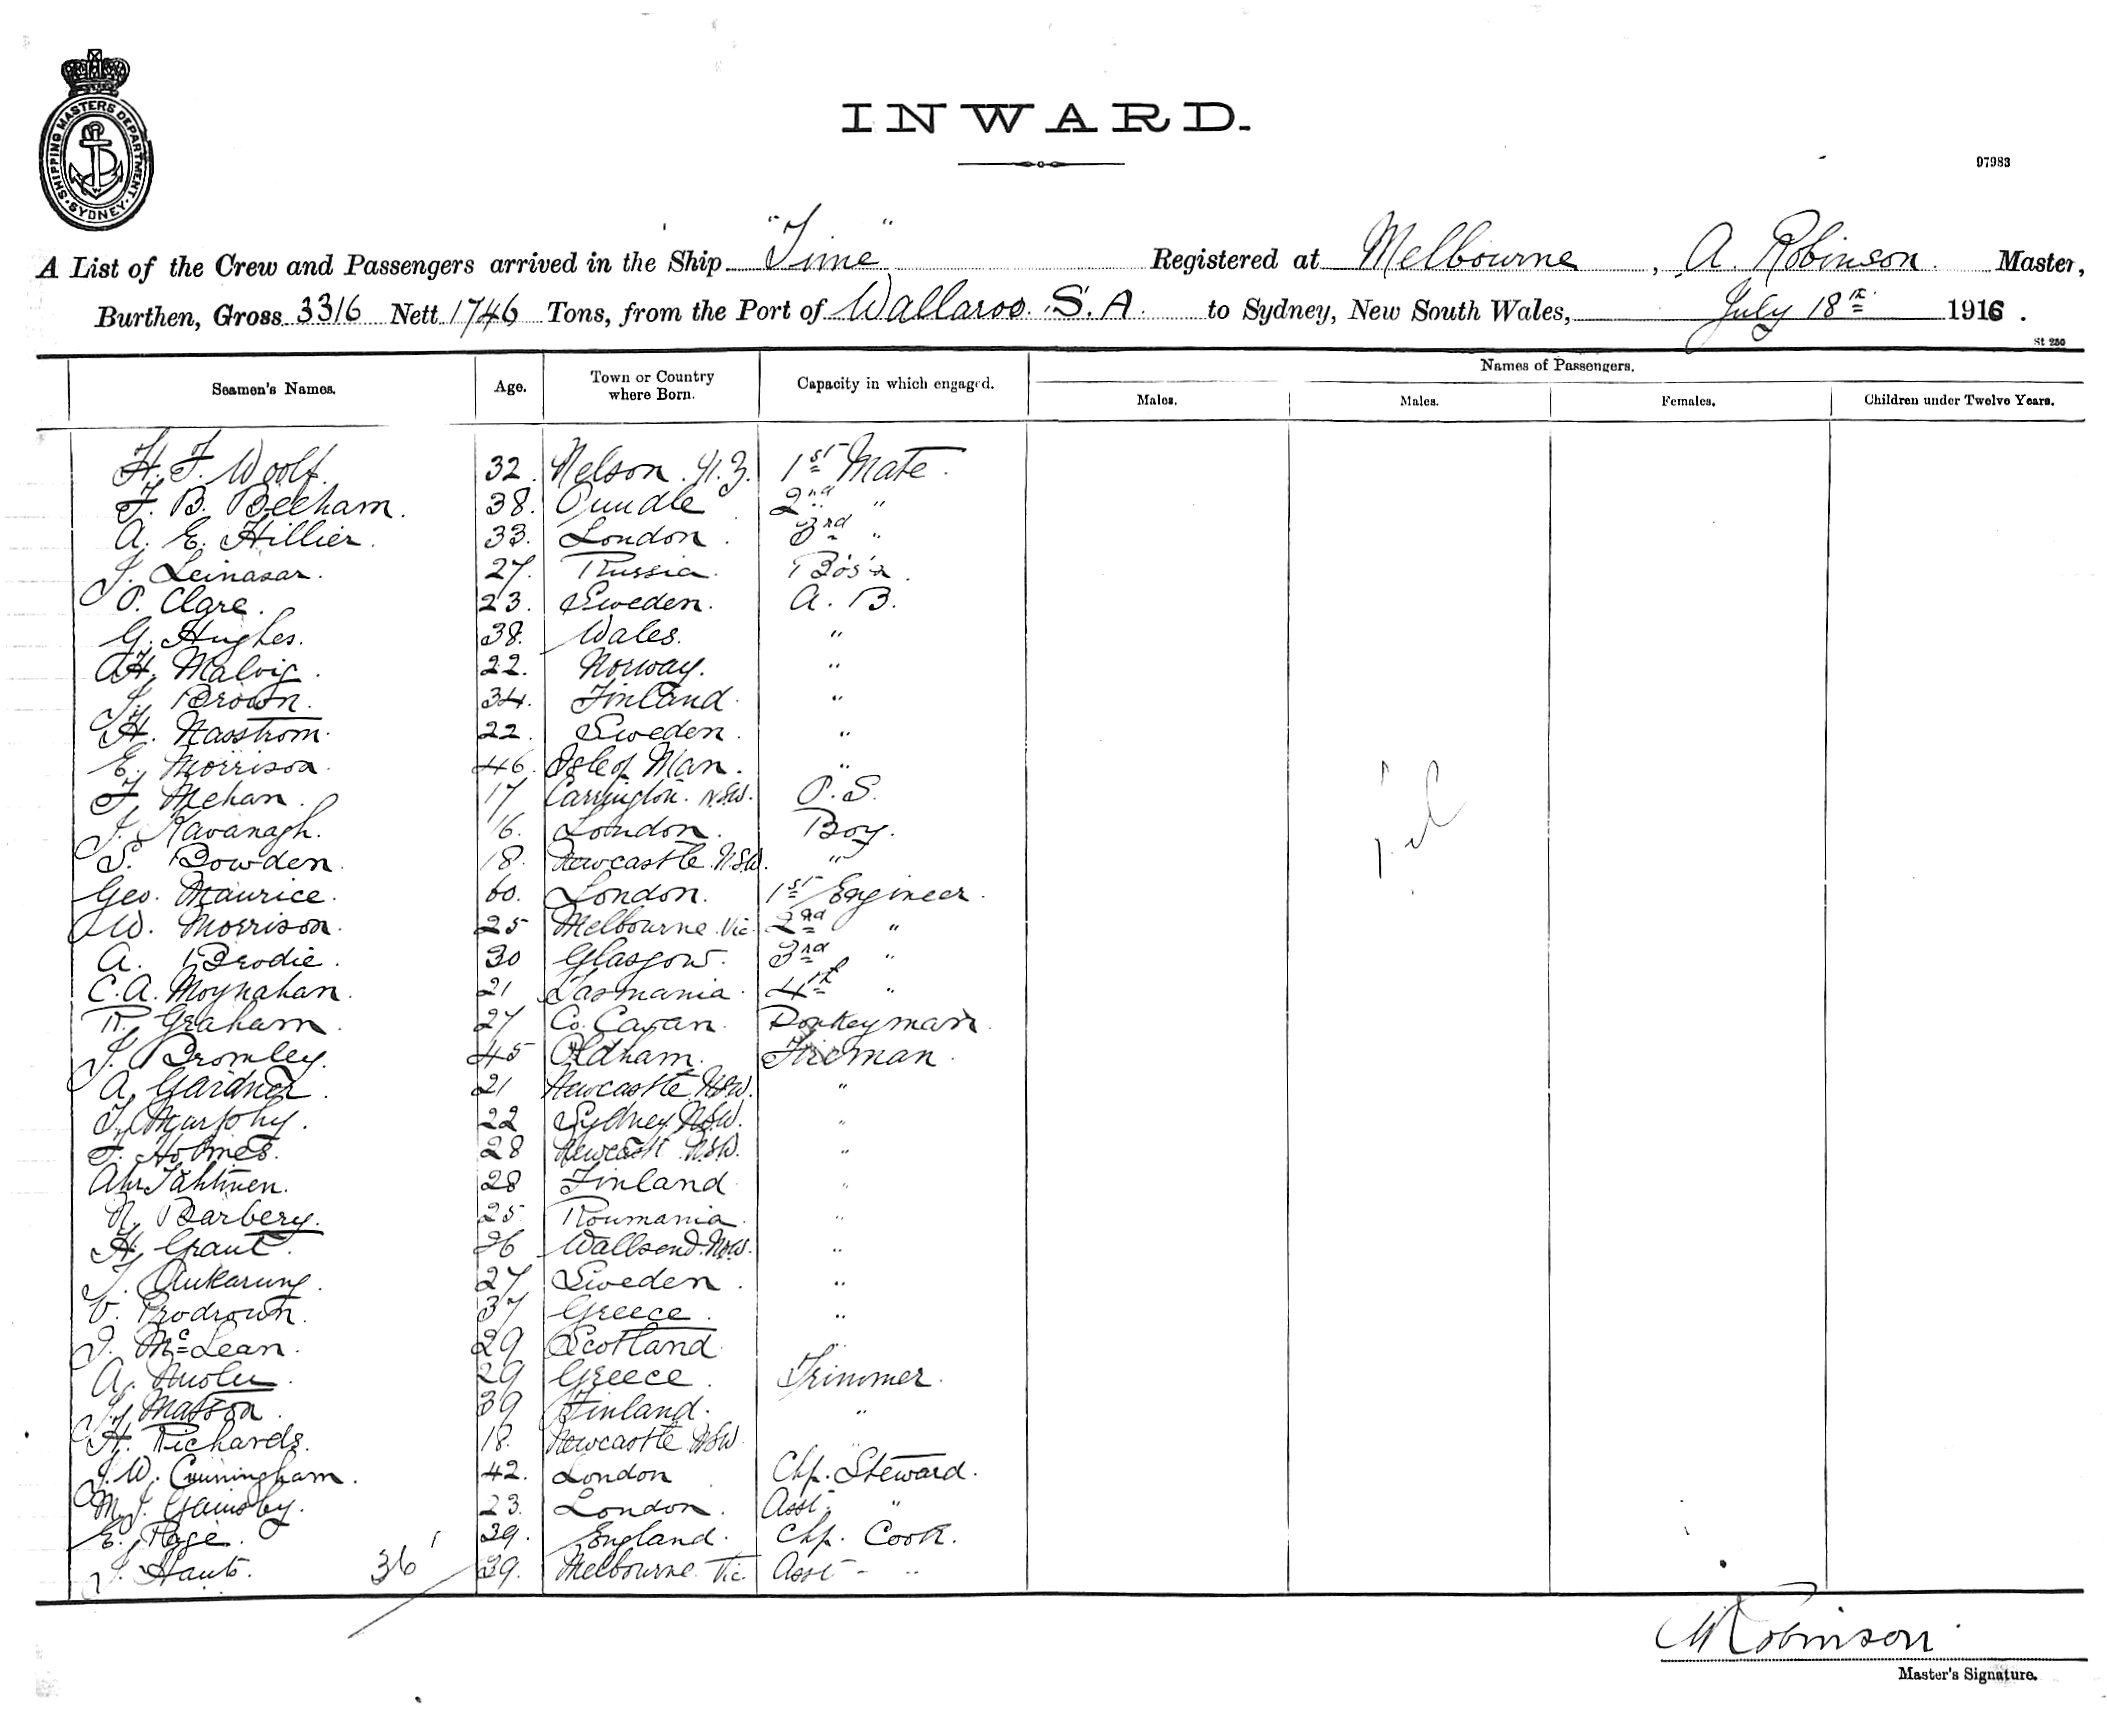 SHIPPING MASTERS DEPARTMENT. SYDNEY.
INWARD.
97983
A List of the Crew and Passengers arrived in the Ship "Time" Registered at Melbourne, A. Robinson. Master,
Burthen, Gross 3316 Nett 1746 Tons, from the Port of Wallaroo. S.A. to Sydney, New South Wales, July 18th 1916.
St 250
Seamen's Names. Age. Town or Country where Born. Capacity in which engaged. Names of Passengers.
Males. Males. Females. Children under Twelve Years.
H. F. Woolf. 32. Nelson. N.Z. 1st Mate.
F. B. Beeham. 38. Oundle 2nd "
A. E. Hillier. 33. London. 3rd "
J. Leinasar. 27. Russia. Bos'n.
O. Clare. 23. Sweden. A. B.
G. Hughes. 38. Wales. "
A.H. Malvig. 22. Norway. "
J. Brown. 34. Finland. "
H. Nasstrom. 22. Sweden. "
E. Morrison. 46. Isle of Man. "
F. Mehan. 17 Carrington. N.S.W. O. S.
J. Kavanagh. 16. London. Boy.
S. Bowden. 18. Newcastle. N.S.W. "
Geo. Maurice. 60. London. 1st Engineer.
W. Morrison. 25 Melbourne. Vic. 2nd "
A. Brodie. 30 Glasgow. 3rd "
C. A. Moynahan. 21 Tasmania. 4th "
R. Graham. 27 Co. Cavan. Donkeyman.
J. Bromley. 45 Oldham. Fireman.
A. Gardner. 21 Newcastle. N.S.W. "
J. Murphy. 22 Sydney. N.S.W. "
F. Holmes. 28 N.S.W. "
Tahtinen. 28 Finland "
N. Barbery. 25 Roumania. "
H. Grant. 26 Wallsend. N.S.W. "
J. 27 Sweden. "
V. 37 Greece. "
J. McLean. 29 Scotland "
A. 29 Greece. Trimmer.
J. Matson. 39 Finland. "
H. Richards. 18. Newcastle N.S.W. "
J. W. Cunningham. 42. London Chf. Steward.
M. J. Gainsby. 23. London. Asst. "
E. Page. 29. England. Chf. Cook.
J. 36 39. Melbourne. Vic. Asst - "
nil
A Robinson
Master's Signature.